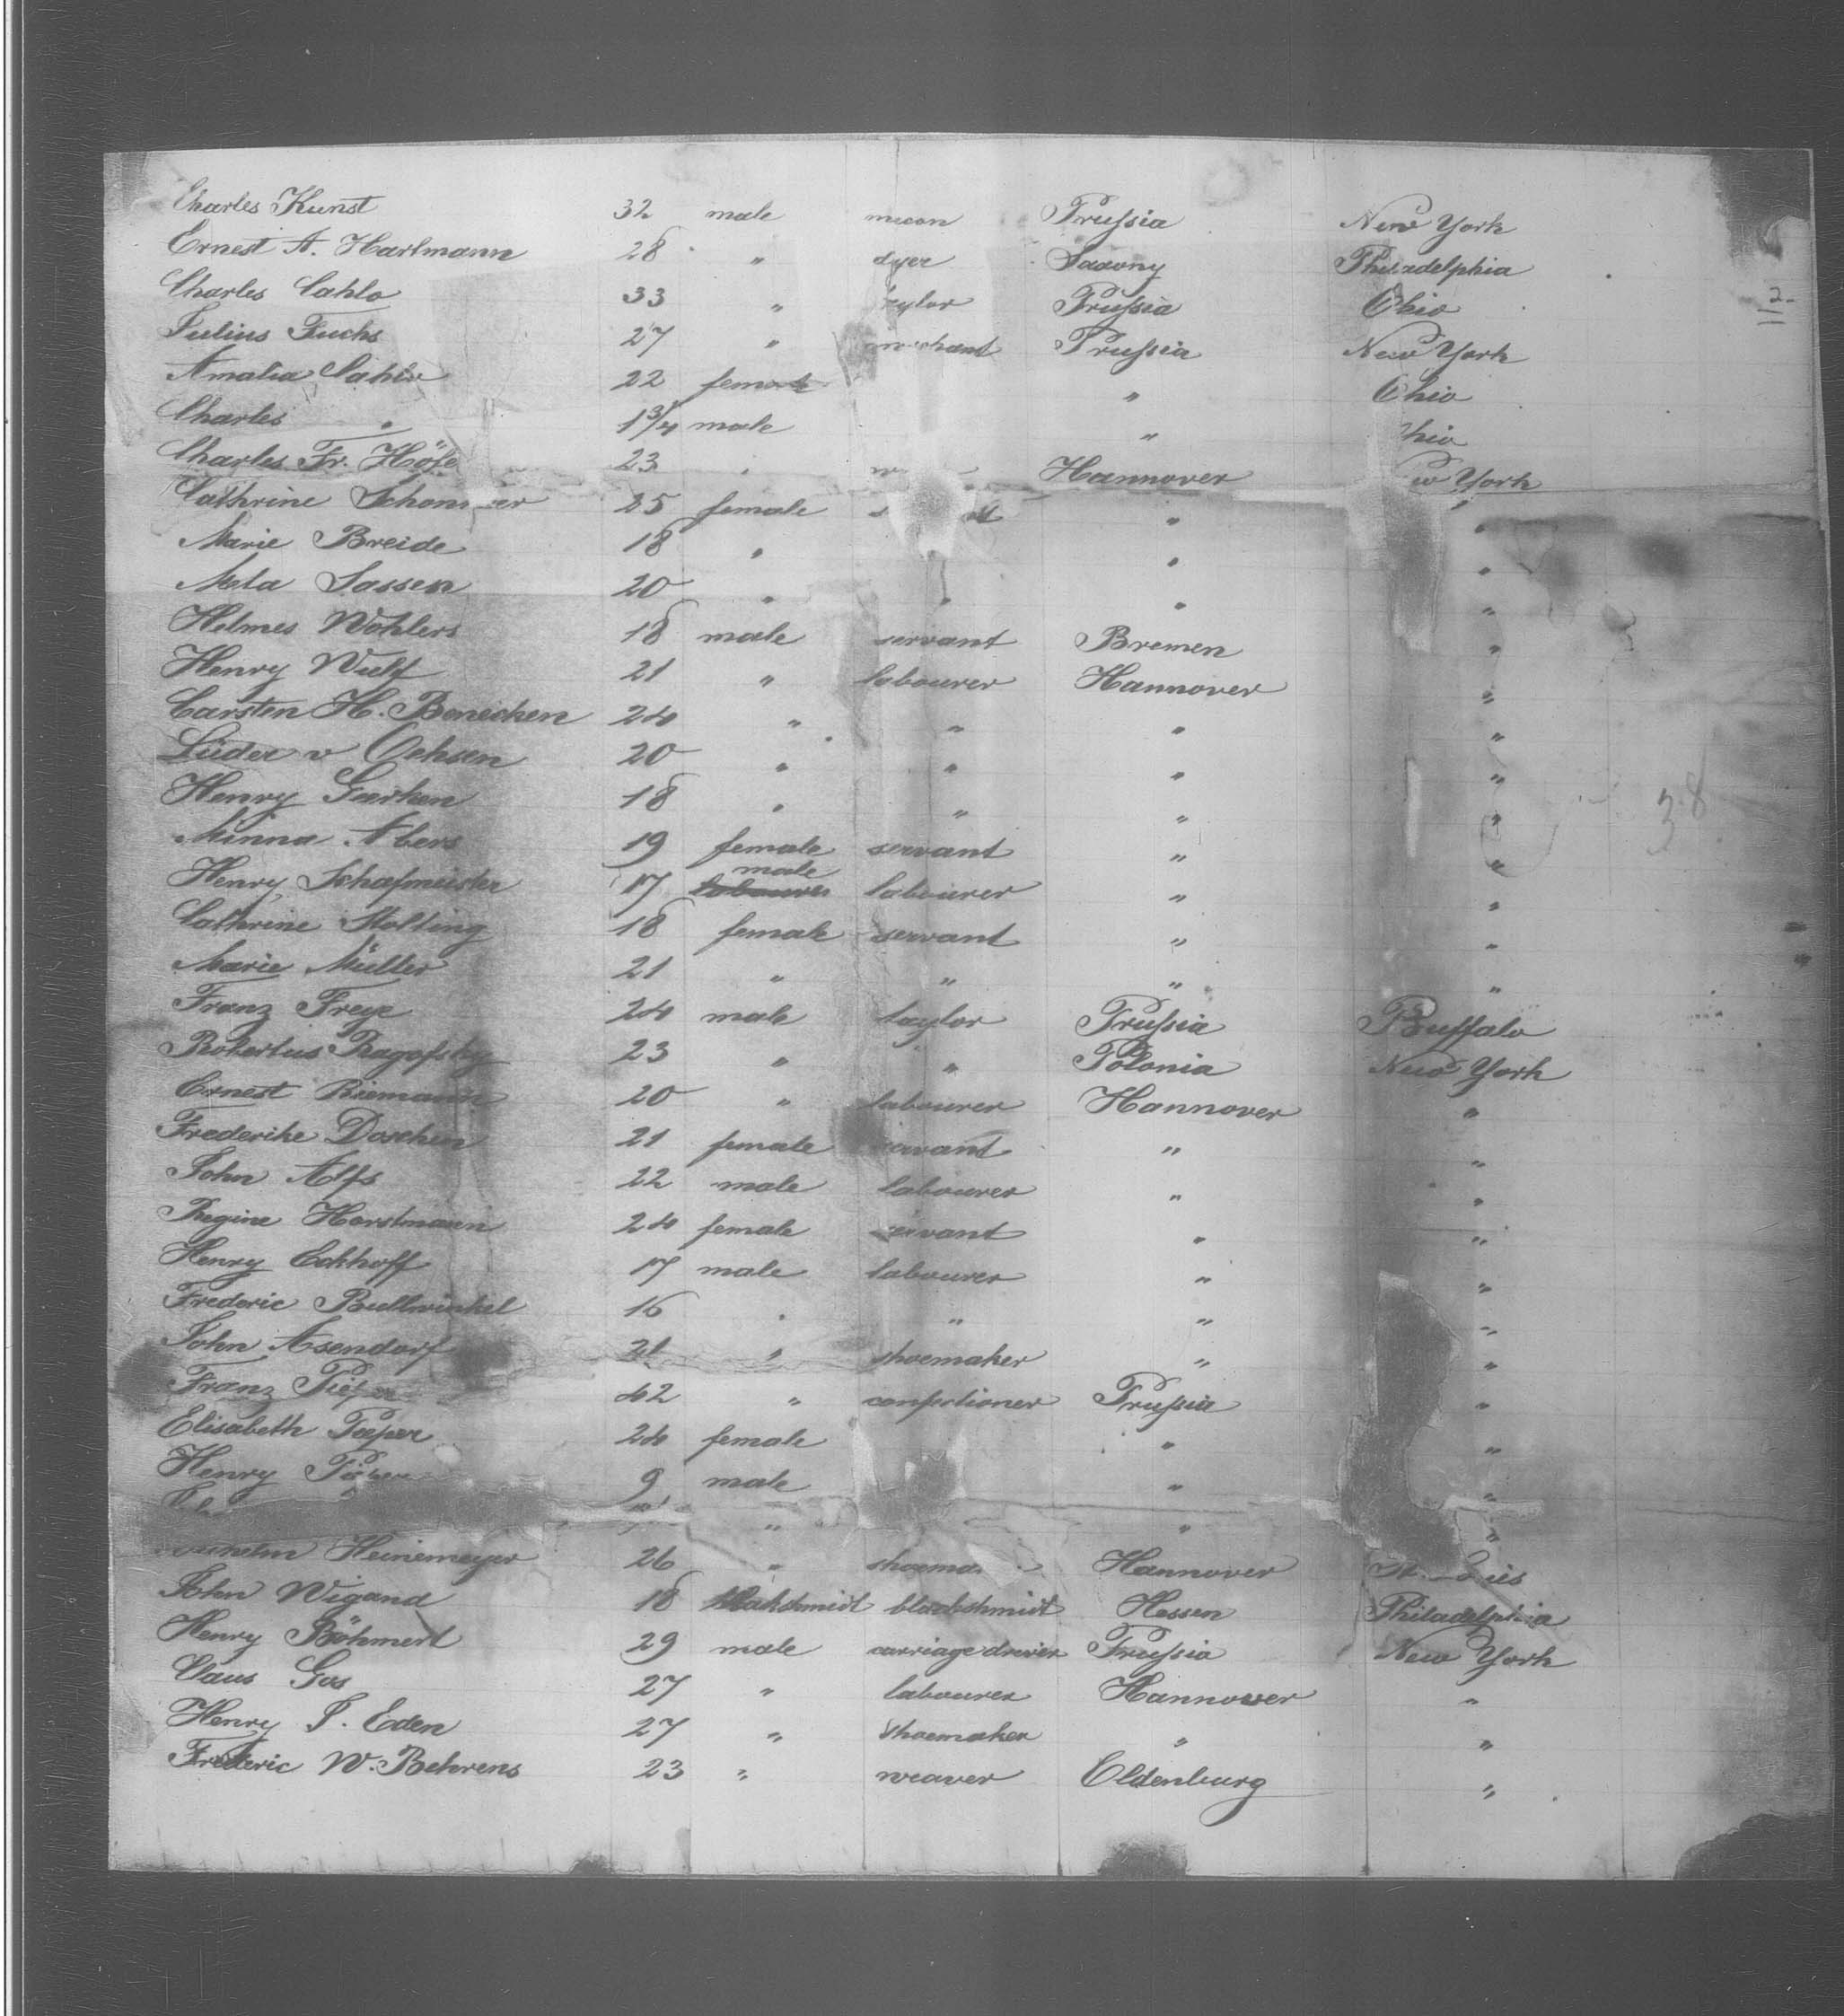 Charles Kunst 32 male mecon Prussia New York
Ernest A. Hartmann 28 " dyer Saxony Philadelphia
2
Charles Cahlo 33 " taylor Prussia Ohio
Julius Fuchs 27 " merchant Prussia New York
Amalia Cahlo 22 female " Ohio
Charles " 1 3/4 male " Ohio
Charles Fr. Höfe 23 " Hannover New York
Cathrine 25 female " "
Marie Breide 18 " " "
Meta Sassen 20 " " " "
Helmes Wohlers 18 male servant Bremen "
Henry Wulf 21 " labourer Hannover "
Carsten H. Benecken 24 " " " "
Lüder v Oehsen 20 " " " "
Henry Garken 18 " " " "
38
Minna Albers 19 female servant " "
Henry Schafmeister 17 male labourer " "
Cathrine Stolting 18 female servant " "
Marie Müller 21 " " " "
Franz Freye 24 male taylor Prussia Buffalo
Robertus Ragofsky 23 " " Polonia New York
Ernest Riemann 20 " labourer Hannover "
Frederike Doschen 21 female servant " "
John Alfs 22 male labourer " "
Regine Horstmann 24 female servant " "
Henry Eckhoff 17 male labourer " "
Frederic Bullwinkel 16 " " " "
John Asendorf 21 " shoemaker " "
Franz Pieper 42 " confectioner Prussia "
Elisabeth Pieper 24 female " "
Henry Pieper 9 male " "
" " "
Wilhelm Heinemeyer 26 " Hannover St. Louis
John Wigand 18 blackshmidt blackshmidt Hessen Philadelphia
Henry Böhmert 29 male carriage driver Prussia New York
Claus Gos 27 " labourer Hannover "
Henry J. Eden 27 " shoemaker " "
Frederic W. Behrens 23 " weaver Oldenburg "